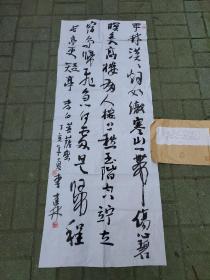 平林漠漠烟如織寒山一帶傷心碧
暝色入高楼有人楼上愁玉阶空竚立
宿鳥歸飛急何處是歸程
长亭更短亭 李白菩薩蛮
丁亥年夏